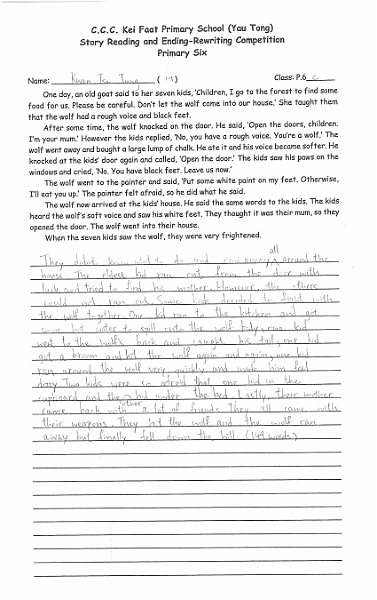 C.C.C. Kei Faat Primary School (Yau Tong)
Story Reading and Ending-Rewriting Competition
Primary Six
Name: Kwan Tsz Tung (19) Class: P.6 C
One day, an old goat said to her seven kids, 'Children, I go to the forest to find some
food for us. Please be careful. Don't let the wolf come into our house.' She taught them
that the wolf had a rough voice and black feet.
After some time, the wolf knocked on the door. He said, 'Open the doors, children.
I'm your mum.' However the kids replied, 'No, you have a rough voice. You're a wolf.' The
wolf went away and bought a large lump of chalk. He ate it and his voice became softer. He
knocked at the kids' door again and called, 'Open the door.' The kids saw his paws on the
windows and cried, 'No. You have black feet. Leave us now.'
The wolf went to the painter and said, 'Put some white paint on my feet. Otherwise,
I'll eat you up.' The painter felt afraid, so he did what he said.
The wolf now arrived at the kids' house. He said the same words to the kids. The kids
heard the wolf's soft voice and saw his white feet. They thought it was their mum, so they
opened the door. The wolf went into their house.
When the seven kids saw the wolf, they were very frightened.
all
They didn't know what to do and ran away around the
house. The oldest kid ran out from the door with
luck and tried to find his mother. However, the others
could not ran out. Some kids decided to fight with
the wolf together. One kid ran to the kitchen and got
some hot water to spill onto the wolf body, two kid
went to the wolf's back and caught his tail, one kid
got a broom and hit the wolf again and again, one kid
ran around the wolf very quickly and made him feel
dizzy. Two kids were so afraid that one hid in the
cupboard and the hid under the bed. Lastly, their mother
other
came back with a lot of friends. They all came with
their weapons. They hit the wolf and the wolf ran
away but finally fell down the hill. (149 words)